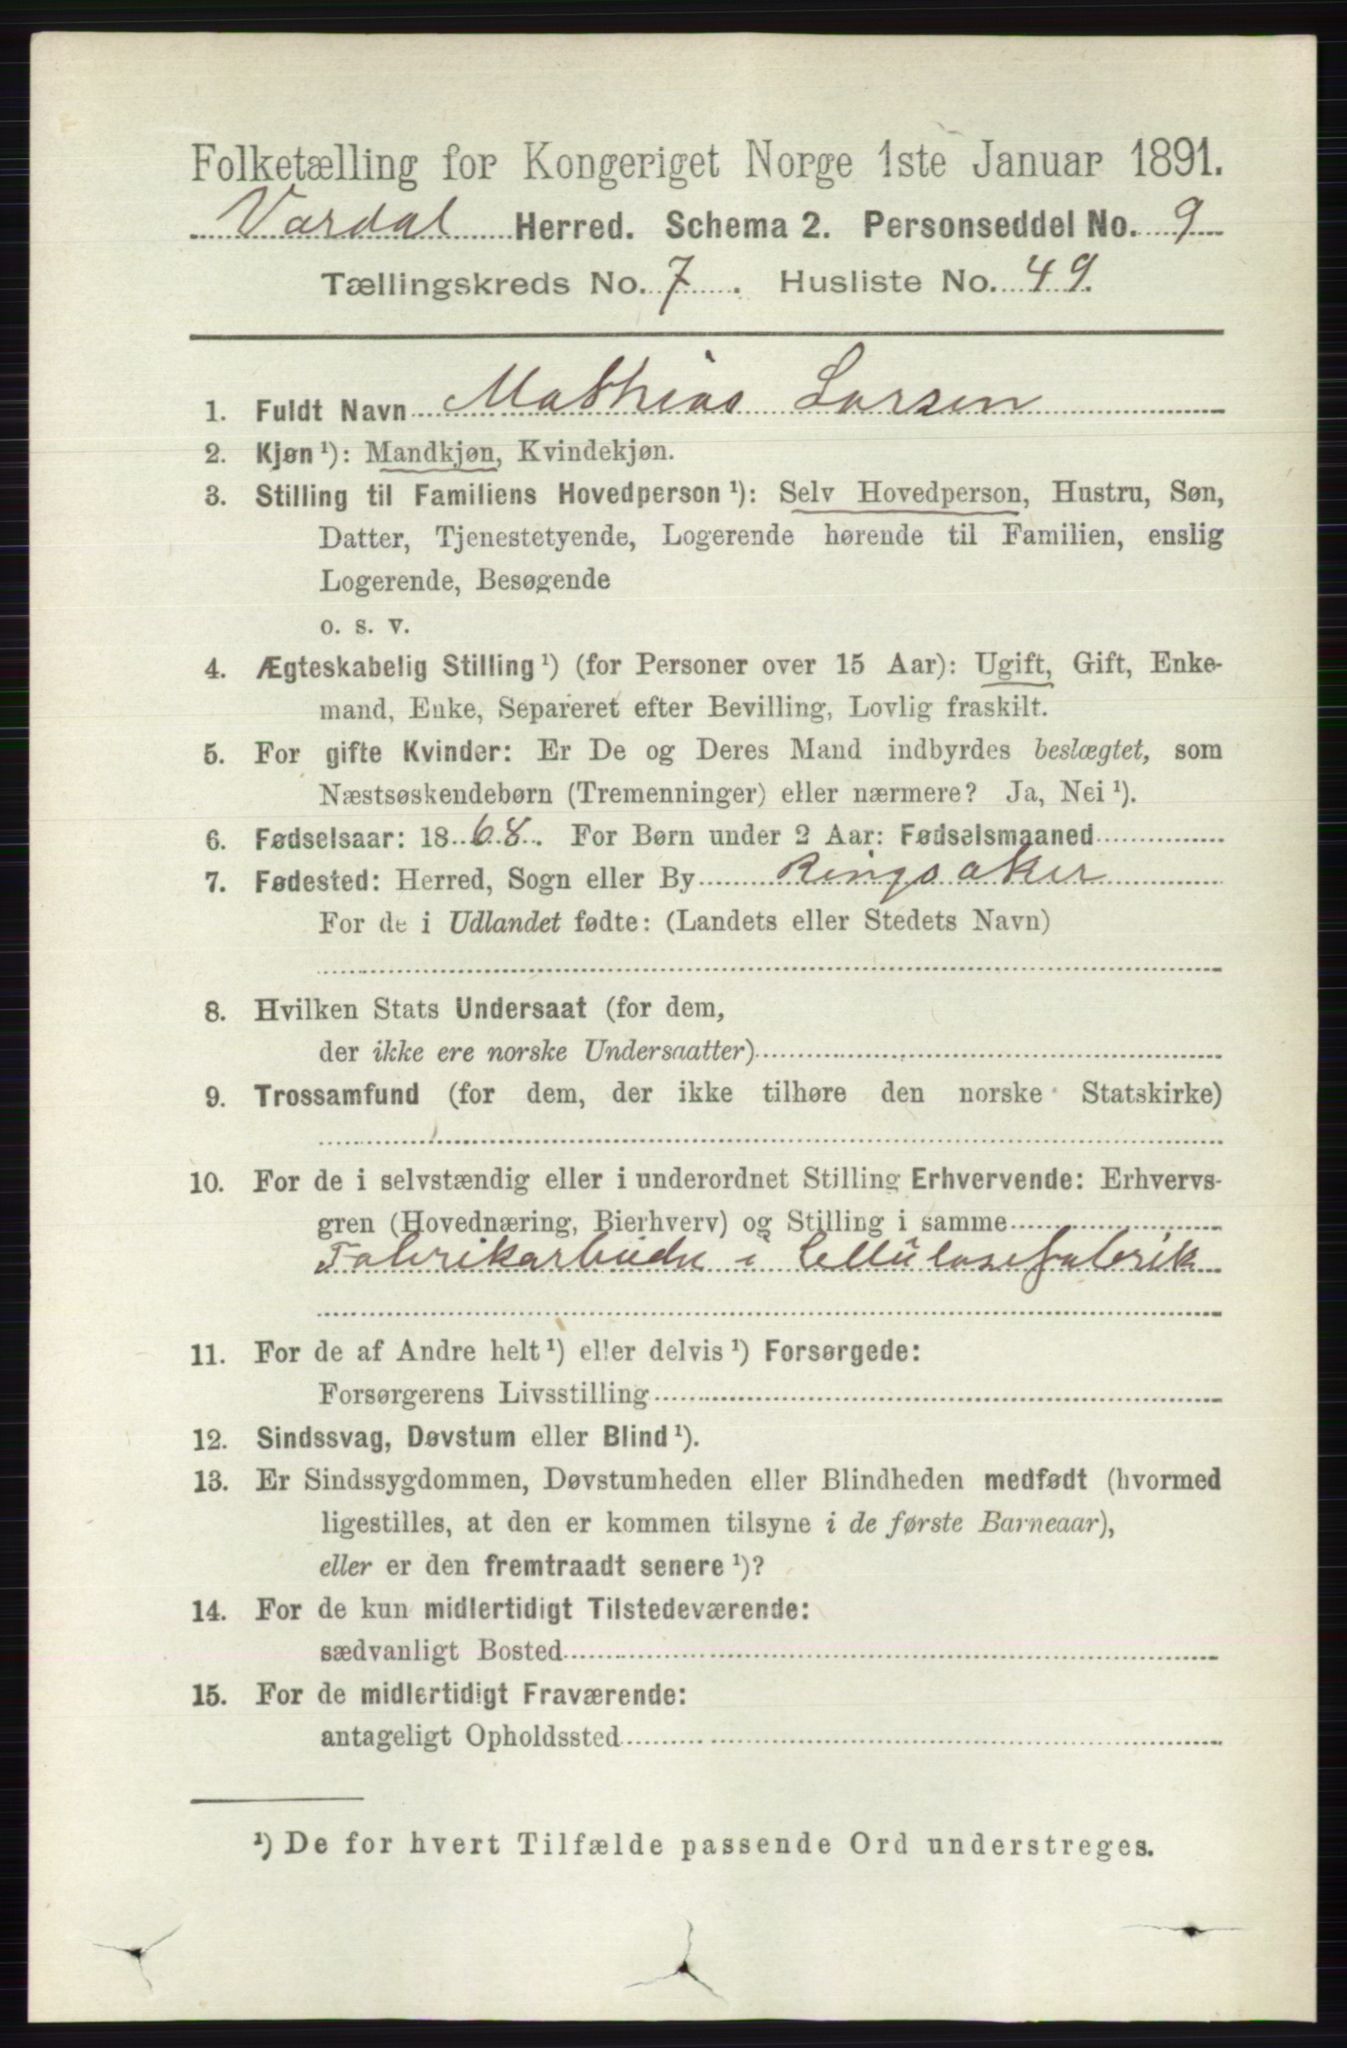 Folketælling for Kongeriget Norge 1ste Januar 1891.
Vardal Herred. Schema 2. Personseddel No. 9
Tællingskreds No. 7. Husliste No. 49.
1. Fuldt Navn Mathias Larsen
2. Kjøn¹): Mandkjøn, Kvindekjøn.
3. Stilling til Familiens Hovedperson¹): Selv Hovedperson, Hustru, Søn,
Datter, Tjenestetyende, Logerende hørende til Familien, enslig
Logerende, Besøgende
o. s. v.
4. Ægteskabelig Stilling¹) (for Personer over 15 Aar): Ugift, Gift, Enke-
mand, Enke, Separeret efter Bevilling, Lovlig fraskilt.
5. For gifte Kvinder: Er De og Deres Mand indbyrdes beslægtet, som
Næstsøskendebørn (Tremenninger) eller nærmere? Ja, Nei¹).
6. Fødselsaar: 1868. For Børn under 2 Aar: Fødselsmaaned
7. Fødested: Herred, Sogn eller By Ringsaker
For de i Udlandet fødte: (Landets eller Stedets Navn)
8. Hvilken Stats Undersaat (for dem,
der ikke ere norske Undersaatter)
9. Trossamfund (for dem, der ikke tilhøre den norske Statskirke)
10. For de i selvstændig eller i underordnet Stilling Erhvervende: Erhvervs-
gren (Hovednæring, Bierhverv) og Stilling i samme
Fabrikarbeider i Cellulosefabrik
11. For de af Andre helt¹) eller delvis¹) Forsørgede:
Forsørgerens Livsstilling
12. Sindssvag, Døvstum eller Blind¹).
13. Er Sindssygdommen, Døvstumheden eller Blindheden medfødt (hvormed
ligestilles, at den er kommen tilsyne i de første Barneaar),
eller er den fremtraadt senere¹)?
14. For de kun midlertidigt Tilstedeværende:
sædvanligt Bosted
15. For de midlertidigt Fraværende:
antageligt Opholdssted
¹) De for hvert Tilfælde passende Ord understreges.